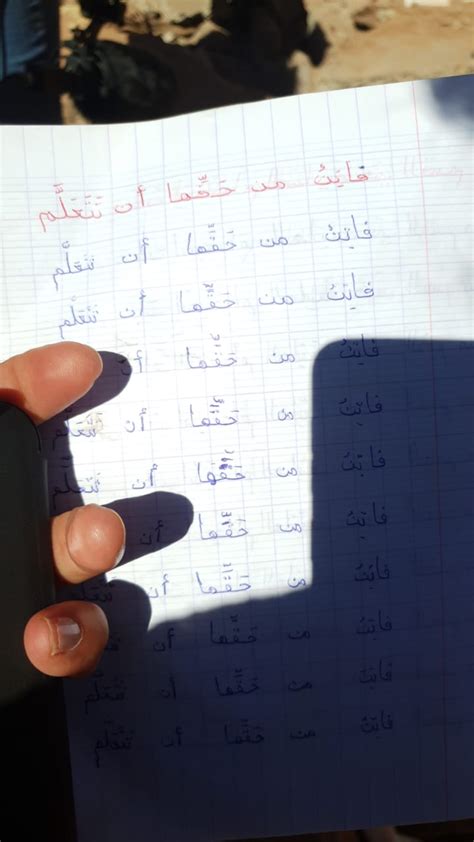 فاتِنُ من حَقِّها أن تَتَعَلَّم
فاتِنُ من حَقِّها أن تَتَعَلَّم
فاتِنُ من حَقِّها أن تَتَعَلَّم
فاتِنُ من حَقِّها أن
فاتِنُ من حَقِّها أن تَتَعَلَّم
فاتِنُ من حَقِّها أن تَتَعَلَّم
فاتِنُ من حَقِّها أن
فاتِنُ من حَقِّها أن تَتَعَلَّم
فاتِنُ من حَقِّها أن
فاتِنُ من حَقِّها أن تَتَعَلَّم
فاتِنُ من حَقِّها أن تَتَعَلَّم